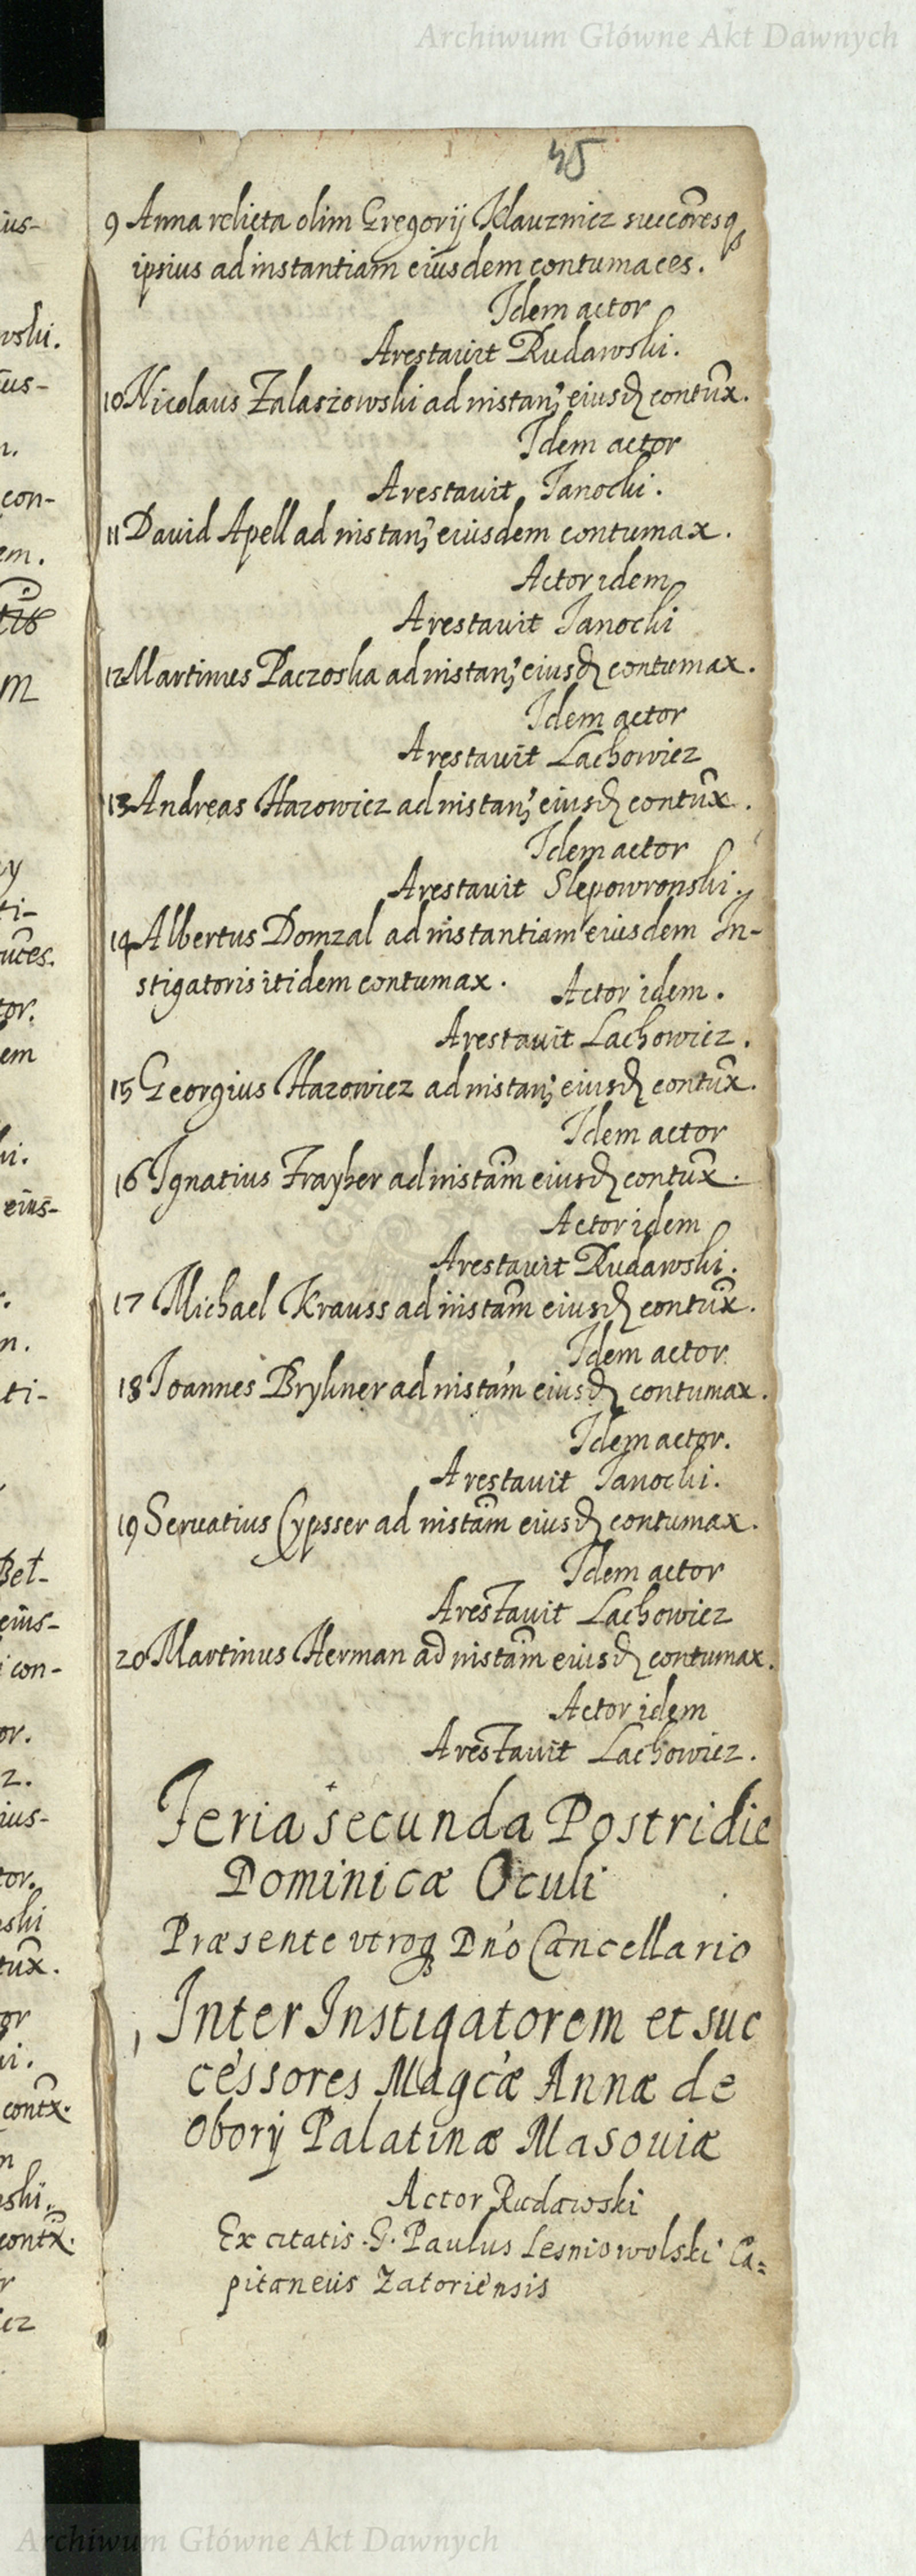 Archiwum Główne Akt Dawnych
45
9 Anna relicta olim Gregorij Klauznicz succōresq̃
ipsius ad instantiam eiusdem contumaces.
Idem actor
Arestauit Rudawski.
10 Nicolaus Zalaszowski ad instan; eiusd contūx.
Idem actor
Arestauit Janocki.
11 Dauid Apell ad instan; eiusdem contumax.
Actor idem
Arestauit Janocki
12 Martinus Paczoska ad instan; eiusd contumax.
Idem actor
Arestauit Lachowicz
13 Andreas Hazowicz ad instan; eiusd contūx.
Idem actor
Arestauit Slepowronski.
14 Albertus Domzal ad instantiam eiusdem In-
stigatoris itidem contumax. Actor idem.
Arestauit Lachowicz.
15 Georgius Hazowicz ad instan; eiusd contūx.
Idem actor
16 Ignatius Frayber ad instam̃ eiusd contūx.
Actor idem
Arestauit Rudawski.
17 Michael Krauss ad instam̃ eiusd contūx.
Idem actor
18 Joannes Brykner ad instam̃ eiusd contumax.
Idem actor.
Arestauit Janocki.
19 Seruatius Cypsser ad instam̃ eiusd contumax.
Idem actor
Arestauit Lachowicz
20 Martinus Herman ad instam̃ eiusd contumax.
Actor idem
Arestauit Lachowicz.
Feria secunda Postridie
Dominicæ Oculi
Præsente vtroq̃ Dn̄o Cancellario
1 Inter Instigatorem et suc
cessores Magc̄æ Annæ de
Oborij Palatinæ Masouiæ
Actor Rudawski
Ex citatis G. Paulus Lesniowolski Ca=
pitaneus Zatoriensis
Archiwum Główne Akt Dawnych